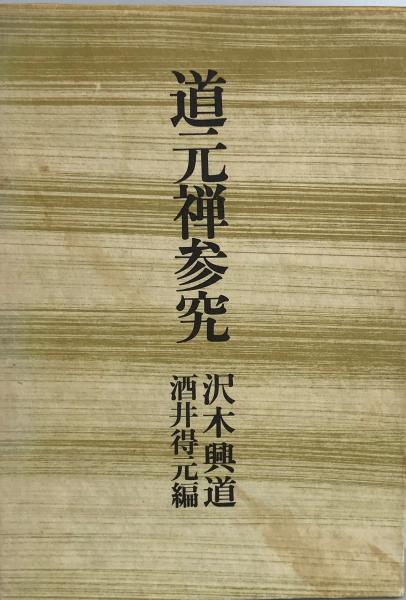 道元禅参究
沢木興道
酒井得元編